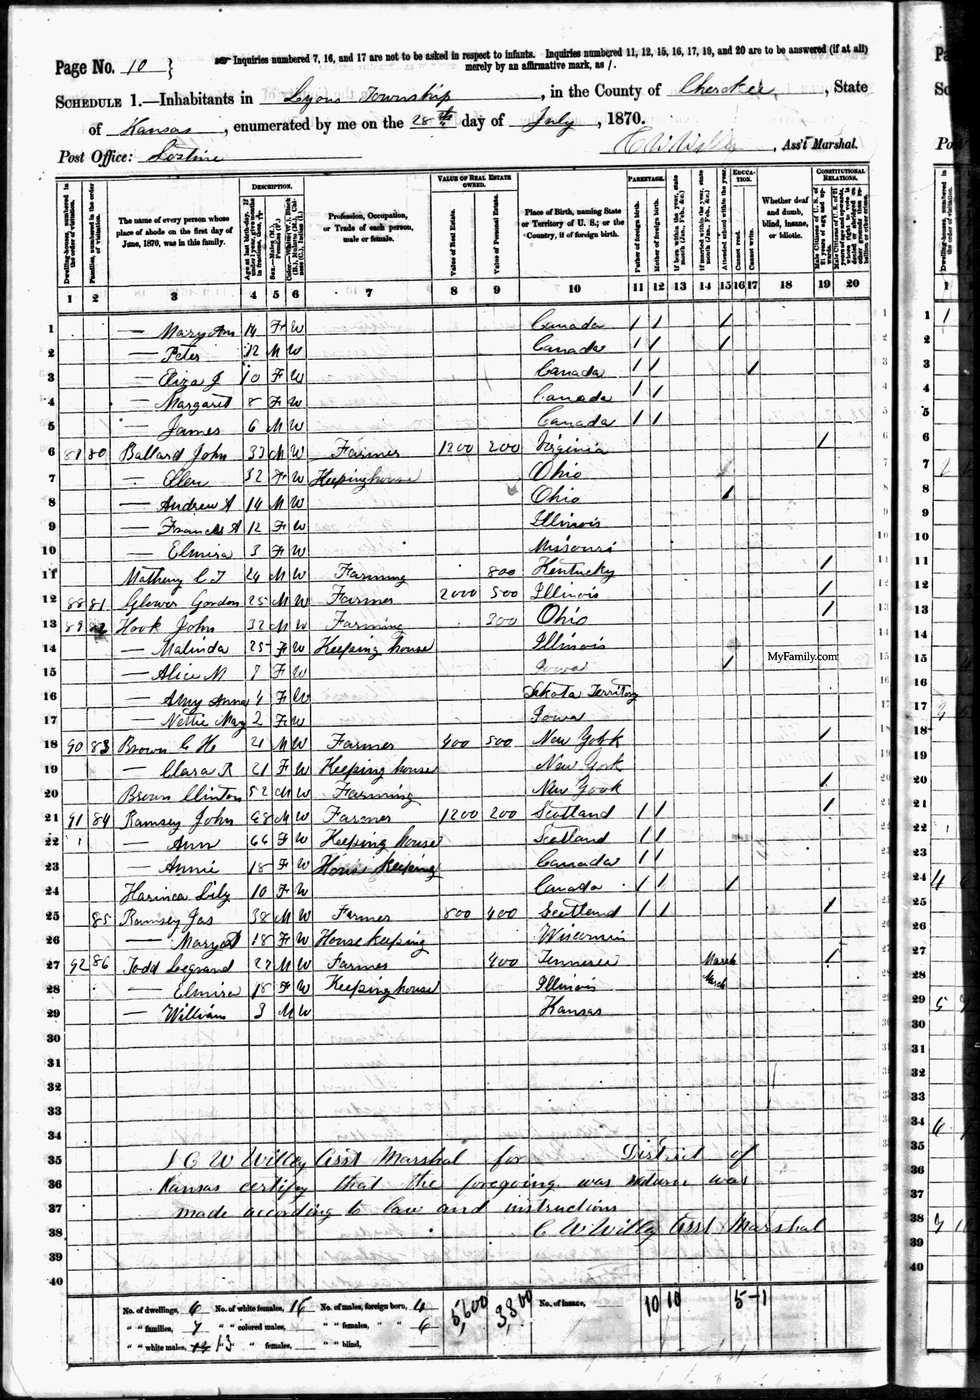 Page No. 10
Inquiries numbered 7, 16, and 17 are not to be asked in respect to infants. Inquiries numbered 11, 12, 15, 16, 17, 19, and 20 are to be answered (if at all)
merely by an affirmative mark, as /.
SCHEDULE 1.—Inhabitants in Lyons Township, in the County of Cherokee, State
of Kansas, enumerated by me on the 28th day of July, 1870.
Post Office: , Ass't Marshal.
DESCRIPTION. VALUE OF REAL ESTATE OWNED. PARENTAGE. EDUCATION. CONSTITUTIONAL RELATIONS.
Dwelling-houses, numbered in the order of visitation.
Families, numbered in the order of visitation.
The name of every person whose place of abode on the first day of June, 1870, was in this family.
Profession, Occupation, or Trade of each person, male or female.
Value of Real Estate.
Value of Personal Estate.
Place of Birth, naming State or Territory of U. S.; or the Country, if of foreign birth.
Father of foreign birth.
Mother of foreign birth.
Attended school within the year.
Cannot read.
Cannot write.
Whether deaf and dumb, blind, insane, or idiotic.
1 2 3 4 5 6 7 8 9 10 11 12 13 14 15 16 17 18 19 20
1 — Mary Ann 14 F W Canada / / /
2 — Peter 12 M W Canada / / /
3 — Eliza J 10 F W Canada / / /
4 — Margaret 8 F W Canada / /
5 — James 6 M W Canada / /
6 81 80 Ballard John 33 M W Farmer 1200 200 Virginia /
7 — Ellen 32 F W Keeping house Ohio
8 — Andrew A 14 M W Ohio /
9 — Francis A 12 F W Illinois
10 — Elmira 3 F W Missouri
11 Matheny C T 24 M W Farming 800 Kentucky /
12 88 81 Glower Gordon 25 M W Farmer 2000 500 Illinois /
13 89 82 Hook John 32 M W Farming 300 Ohio /
14 — Malinda 25 F W Keeping house Illinois
15 — Alice M 7 F W Iowa /
16 — Amy Anna 4 F W Dakota Territory
17 — Nettie May 2 F W Iowa
18 90 83 Brown C H 21 M W Farmer 400 500 New York /
19 — Clara R 21 F W Keeping house New York
20 Brown Clinton 52 M W Farming New York /
21 91 84 Ramsey John 68 M W Farmer 1200 200 Scotland / / /
22 — Ann 66 F W Keeping house Scotland / /
23 Annie 18 F W House keeping Canada / /
24 Lily 10 F W Canada / / /
25 85 Ramsey Jas 38 M W Farmer 800 400 Scotland / / /
26 — Margat 18 F W House keeping Wisconsin
27 92 86 Todd Legrand 22 M W Farmer 400 Tennessee March /
28 — Elmira 18 F W Keeping house Illinois March
29 — William 3 M W Kansas
30
31
32
33
34
35 I C W Willey Asst Marshal for District of
36 Kansas certify that the foregoing was return was
37 made acording to law and instructions
38 C W Willey Asst Marshal
39
40
MyFamily.com
No. of dwellings, 6 No. of white females, 16 No. of males, foreign born, 4 5,600 3,800 No. of insane, 10 10 5 - 1
" " families, 7 " " colored males, " " females, " " 6
" " white males, 13 " " females, " " blind,